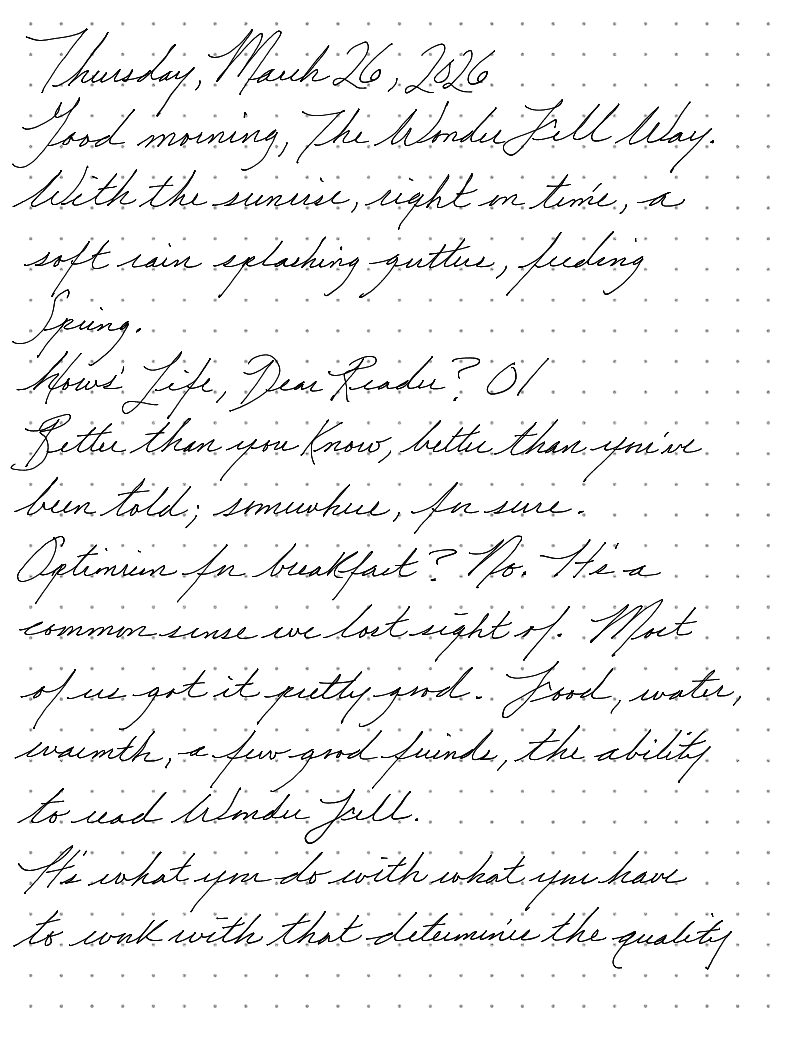 Thursday, March 26, 2026
Good morning, The Wonder Jell Way.
With the sunrise, right on time, a
soft rain splashing gutters, feeding
Spring.
Hows' Life, Dear Reader? 01
Better than you know, better than you've
been told; somewhere, for sure.
Optimism for breakfast? No. It's a
common sense we lost sight of. Most
of us got it pretty good. Food, water,
warmth, a few good friends, the ability
to read Wonder Jell.
It's what you do with what you have
to work with that determines the quality